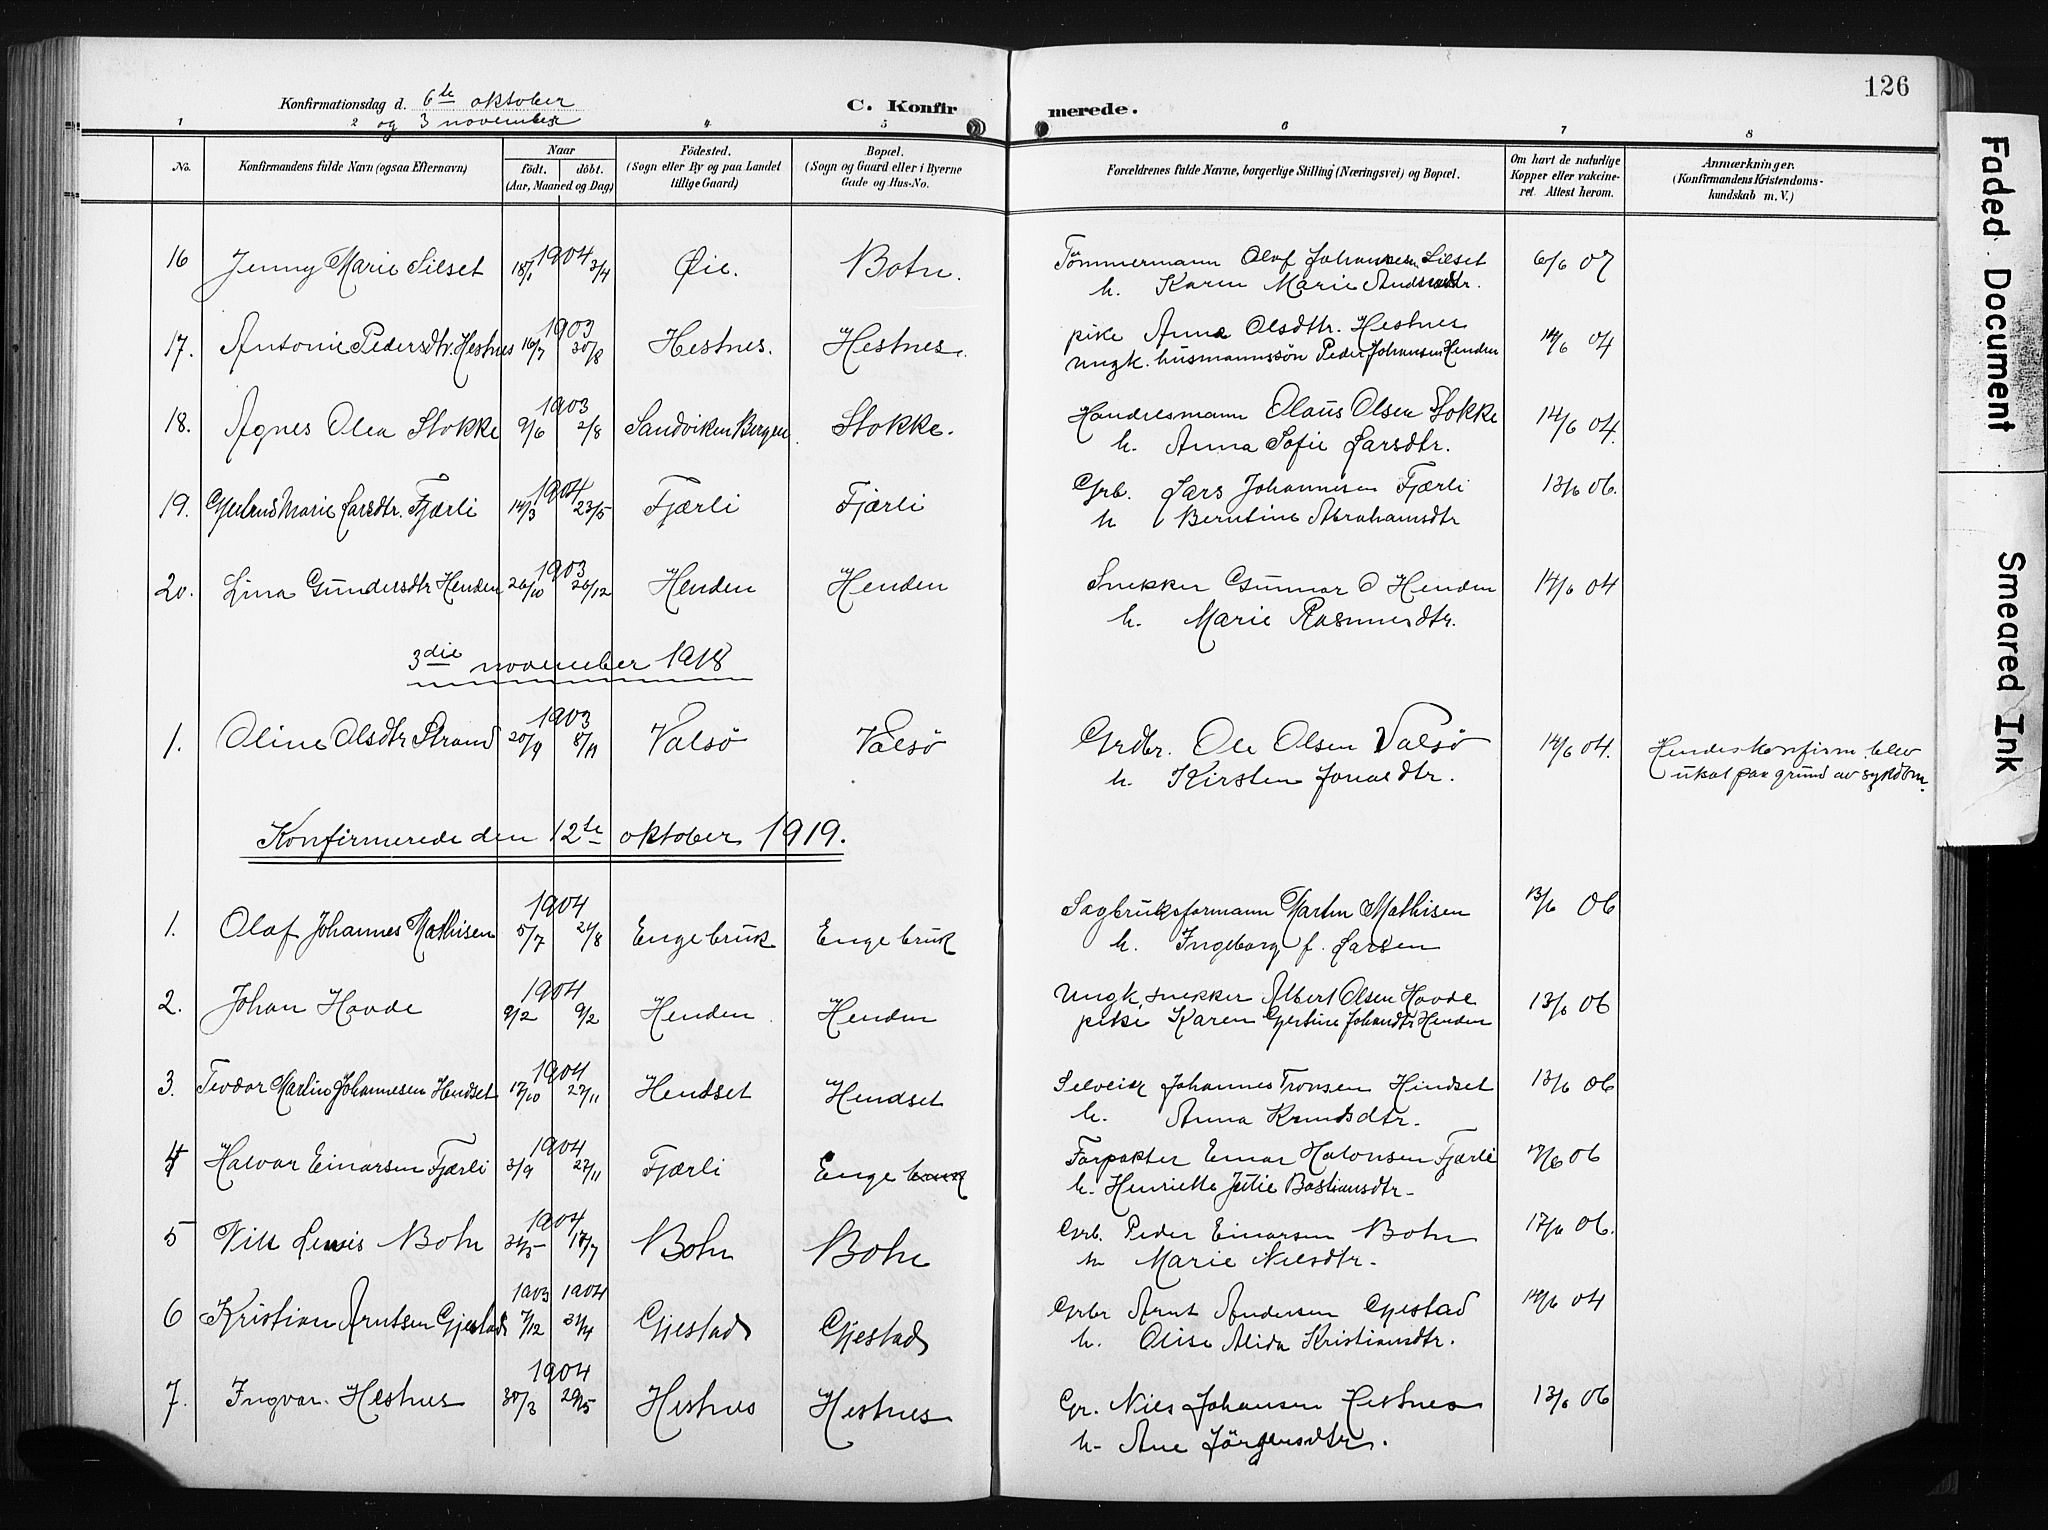 126
Konfirmationsdag d. 6te oktober
og 3 november
C. Konfirmerede.
1 2 4 5 6 7 8
No. Konfirmandens fulde Navn (ogsaa Efternavn) Naar født. døbt. (Aar, Maaned og Dag) Fødested. (Sogn eller By og paa Landet tillige Gaard) Bopæl. (Sogn og Gaard eller i Byerne Gade og Hus-No. Forældrenes fulde Navne, borgerlige Stilling (Næringsvei) og Bopæl. Om havt de naturlige Kopper eller vakcineret Attest herom. Anmærkninger. (Konfirmandens Kristendomskundskab m. V.)
16 Jenny Marie Silset 18/1 1904 3/4 Øie. Botn. Tömmermann Olaf Johannesen Silset 6/6 07
h. Karen Marie
17. Antonie Pedersdtr. Hestnes 16/7 1903 30/8 Hestnes. Hestnes. pike Anna Olsdttr. Hestnes 14/6 04
ungk. husmannssön Peder Johansen Henden
18. Agnes Olea Stokke 9/6 1903 2/8 Sandviken Bergen. Stokke. Handelsmann Olaus Olsen Stokke 14/6 04.
h. Anna Sofie Larsdtr.
19. Marie Larsdtr. Fjærli 14/3 1904 23/5 Fjærli Fjærli Grb. Lars Johannesen Fjærli 13/6 06.
h Berntine Abrahamsdtr
20. Lina Gundersdtr Henden 26/10 1903 26/12 Henden Henden Snekker Gunnar O Henden 14/6 04
h. Marie Rasmusdtr.
3die november 1918
1. Oline Olsdtr Strand 20/9 1903 8/11 Valsö Valsö Grdbr. Ole Olsen Valsö 14/6 04. Hendes konfirm. blev
h. Kirsten Jonasdtr. utsat paa grund av sykdom.
Konfirmerede den 12te oktober 1919.
1. Olaf Johannes Mathisen 5/7 1904 21/8 Engebruk Engebruk Sagbruksformann Martin Mathisen 13/6 06
h. Ingeborg f. Larsen
2. Johan Hovde 9/2 1904 9/2 Henden Henden Ungk. snekker Albert Olsen Hovde 13/6 06
pike Karen Gjertine Johansdtr Henden
3. Tevdor Martin Johannesen Hendset 17/10 1904 27/11 Hendset Hendset Selveier Johannes Tronsen Hindset 13/6 06
h. Anna Knudsdtr.
4 Halvar Einarsen Fjærli 3/9 1904 27/11 Fjærli Enge Forpakter Einar Halvorsen Fjærli 06
h. Henriette Julie Bastiansdtr.
5 Nils Lewis Botn 31/5 1904 17/7 Botn Botn Grb. Peder Einarsen Botn 17/6 06.
h Marie Nilsdtr.
6 Kristian Arntsen Gjestad 7/12 1903 1904 Gjestad Gjestad Grbr Arnt Andersen Gjestad 14/6 04
h. Olise Alida Kristiansdtr.
7. Ingvar. Hestnes 30/3 1904 29/5 Hestnes Hestnes Gr. Nils Johansen Hestnes 13/6 06
h. Ane Jörgensdtr.
Faded Document
Smeared Ink